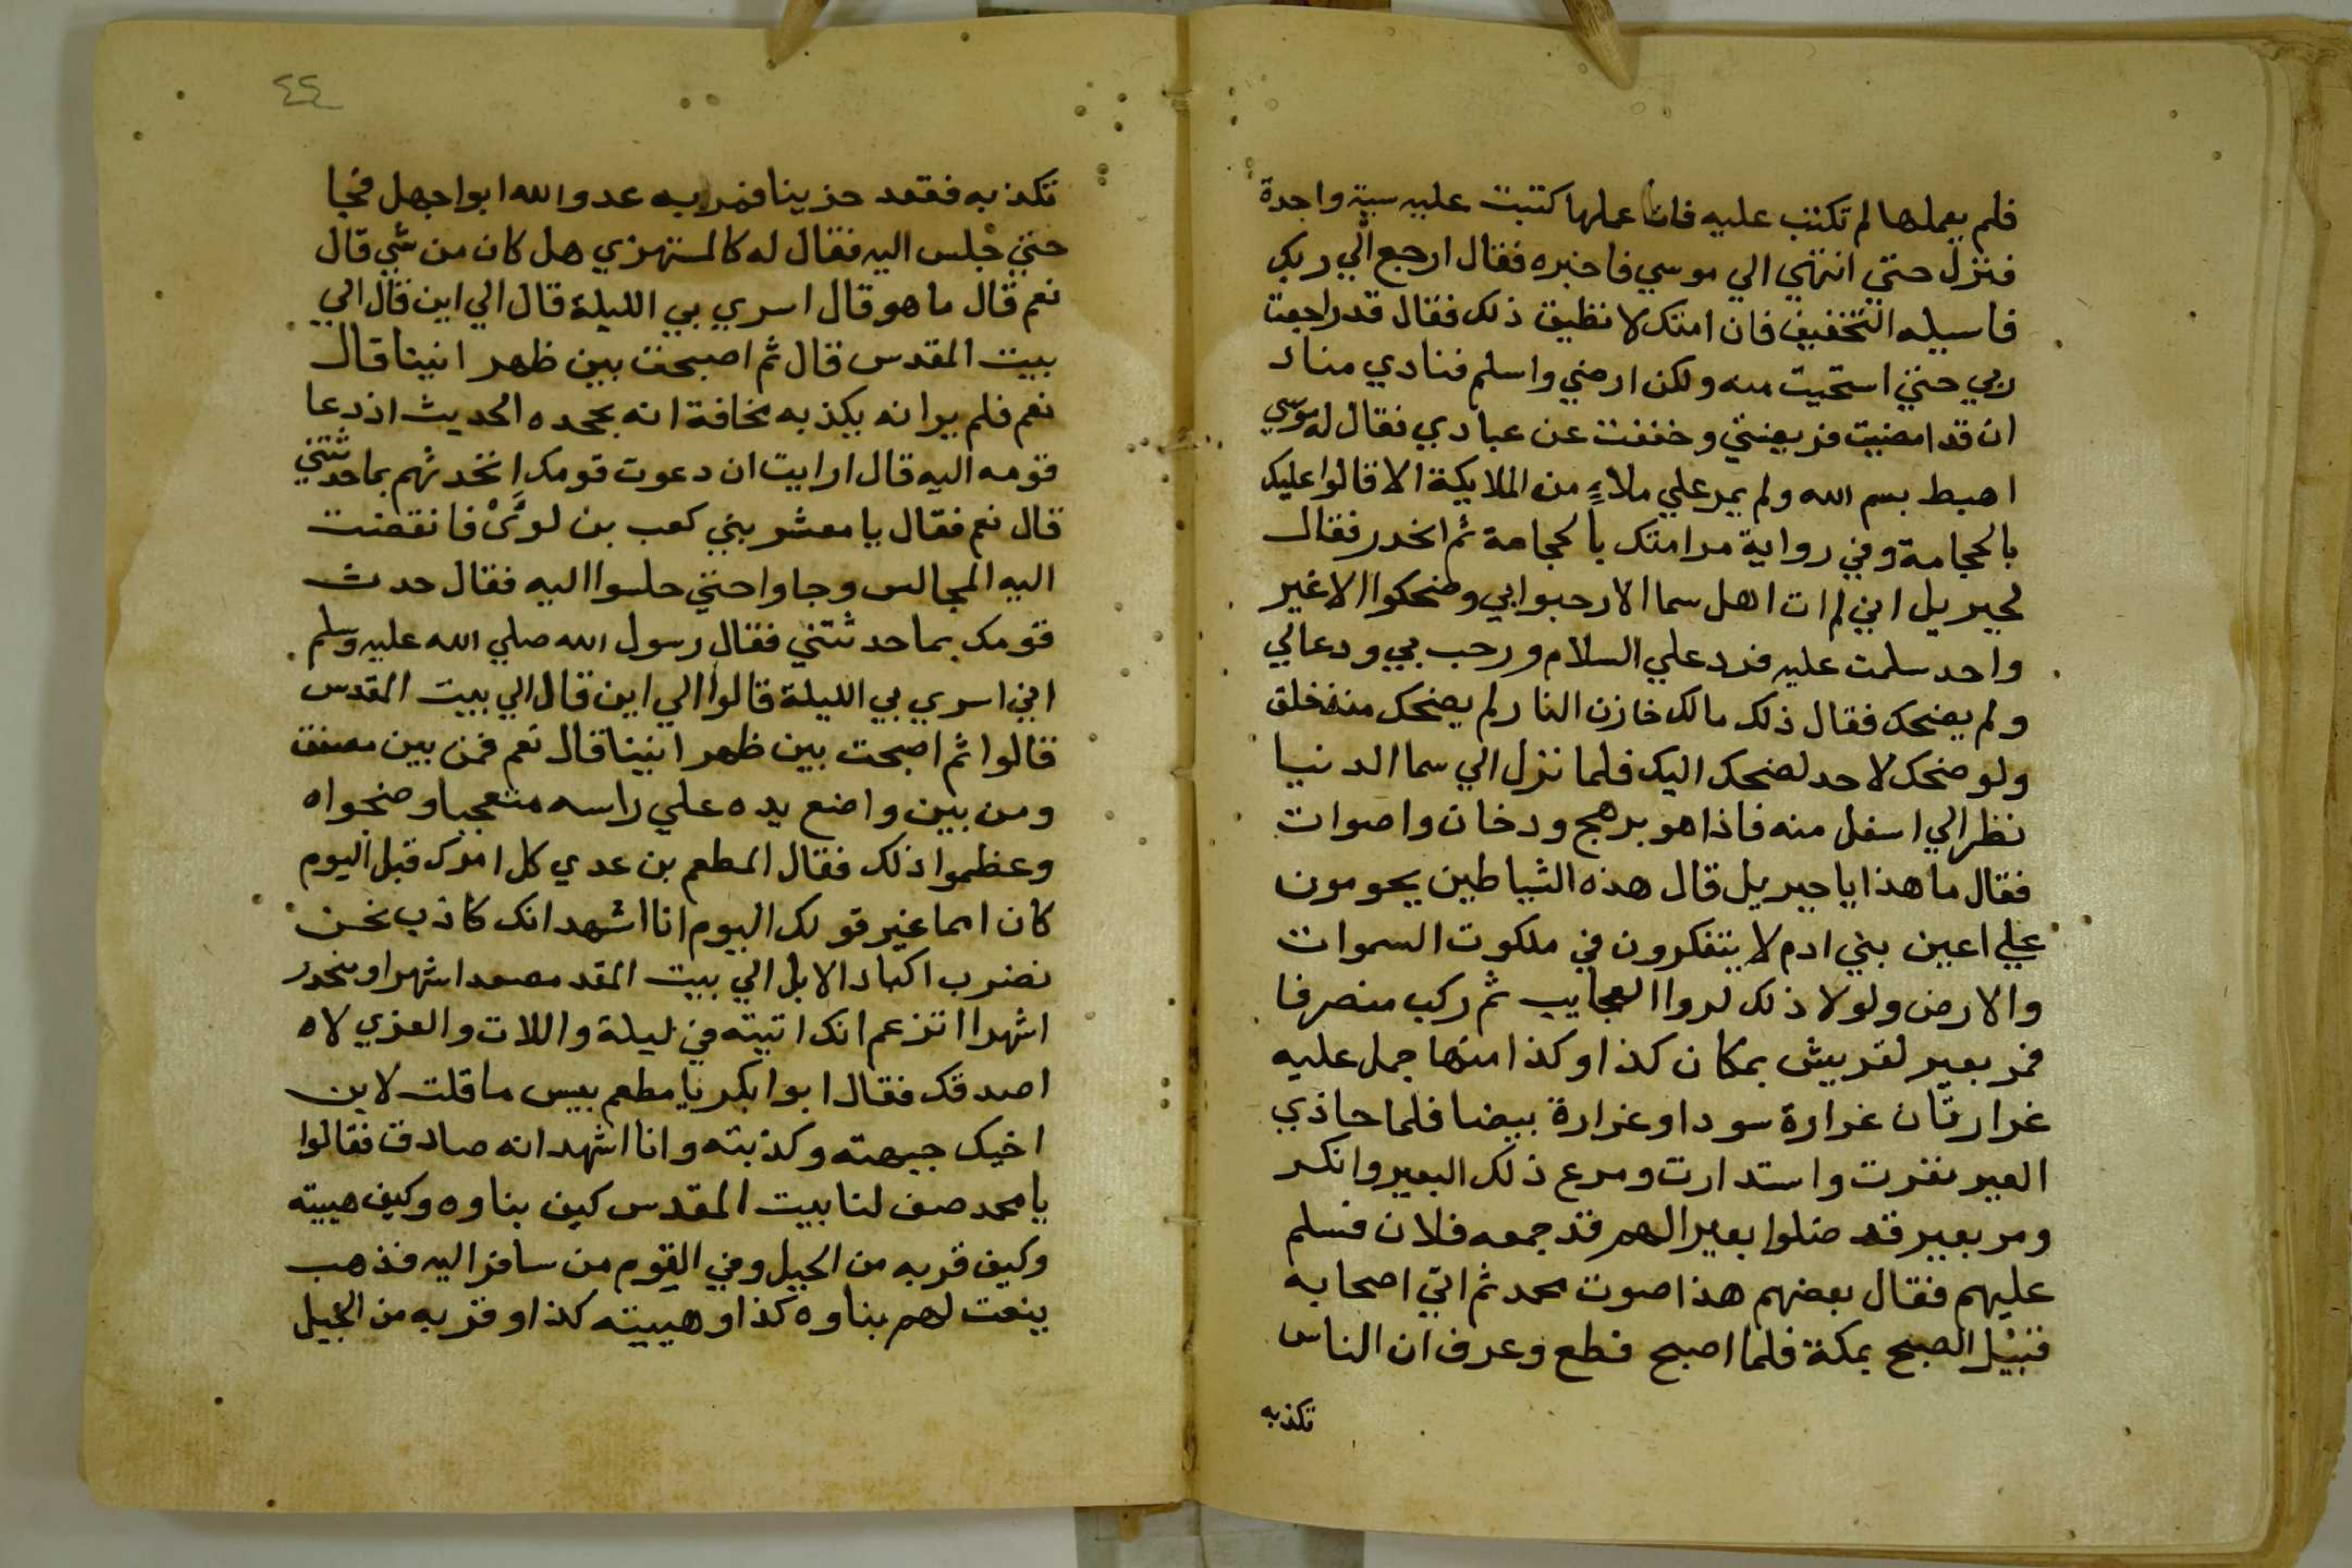 فلم يعملها لم تكتب عليه فان عملها كتبت عليه سية واحدة
فنزل حتي انتهي الي موسي فاخبره فقال ارجع الي ربك
فاسيله التخفيف فان امتك لا تطيق ذلك فقال قد راجعت
ربي حتي استحيت منه ولكن ارضي واسلم فنادي مناد
ان قد امضيت فريضتي وخففت عن عبادي فقال له موسي
اهبط بسم الله ولم يمر علي ملاء من الملايكة الا قالوا عليك
بالحجامة وفي رواية مر امتك بالحجامة ثم انحدر فقال
لجبريل اني لم ات اهل سما الا رحبوا بي وضحكوا الا غير
واحد سلمت عليه فرد علي السلام ورحب بي ودعا لي
ولم يضحك فقال ذلك مالك خازن النار لم يضحك منذ خلق
ولو ضحك لاحد لضحك اليك فلما نزل الي سما الدنيا
نظر الي اسفل منه فاذا هو برهج ودخان واصوات
فقال ما هذا يا جبريل قال هذه الشياطين يحومون
علي اعين بني ادم لا يتفكرون في ملكوت السموات
والارض ولولا ذلك لروا العجايب ثم ركب منصرفا
فمر بعير لقريش بمكان كذا وكذا منها جمل عليه
غرارتان غرارة سودا وغرارة بيضا فلما حاذي
العير نفرت واستدارت وصرع ذلك البعير وانكسر
ومر بعير قد ضلوا بعيرا لهم قد جمعه فلان فسلم
عليهم فقال بعضهم هذا صوت محمد ثم اتي اصحابه
قبيل الصبح بمكة فلما اصبح قطع وعرف ان الناس
تكذبه
٤٤
تكذبه فقعد حزينا فمر به عدو الله ابوا جهل فجا
حتي جلس اليه فقال له كالمستهزي هل كان من شي قال
نعم قال ما هو قال اسري بي الليلة قال الي اين قال الي
بيت المقدس قال ثم اصبحت بين ظهر انينا قال
نعم فلم ير انه يكذبه مخافة انه يجحده الحديث اذ دعا
قومه اليه قال ارايت ان دعوت قومك اتحدثهم بما حدثتني
قال نعم فقال يا معشر بني كعب بن لوي فانقضت
اليه المجالس وجاوا حتي جلسوا اليه فقال حدث
قومك بما حدثتني فقال رسول الله صلي الله عليه وسلم
اني اسري بي الليلة قالوا الي اين قال الي بيت المقدس
قالوا ثم اصبحت بين ظهر انينا قال نعم فمن بين مصفق
ومن بين واضع يده علي راسه متعجبا وضجوا
وعظموا ذلك فقال المطعم بن عدي كل امرك قبل اليوم
كان امما غير قولك اليوم انا اشهد انك كاذب نحن
نضرب اكباد الابل الي بيت المقد مصعدا شهرا ومنحدر
اشهرا اتزعم انك اتيته في ليلة واللات والعزي لاه
اصدقك فقال ابوا بكر يا مطعم بيس ما قلت لابن
اخيك جبهته وكذبته وانا اشهد انه صادق فقالوا
يا محمد صف لنا بيت المقدس كيف بناوه وكيف هييته
وكيف قربه من الجبل وفي القوم من سافر اليه فذهب
ينعت لهم بناوه كذا وهييته كذا وقربه من الجبل